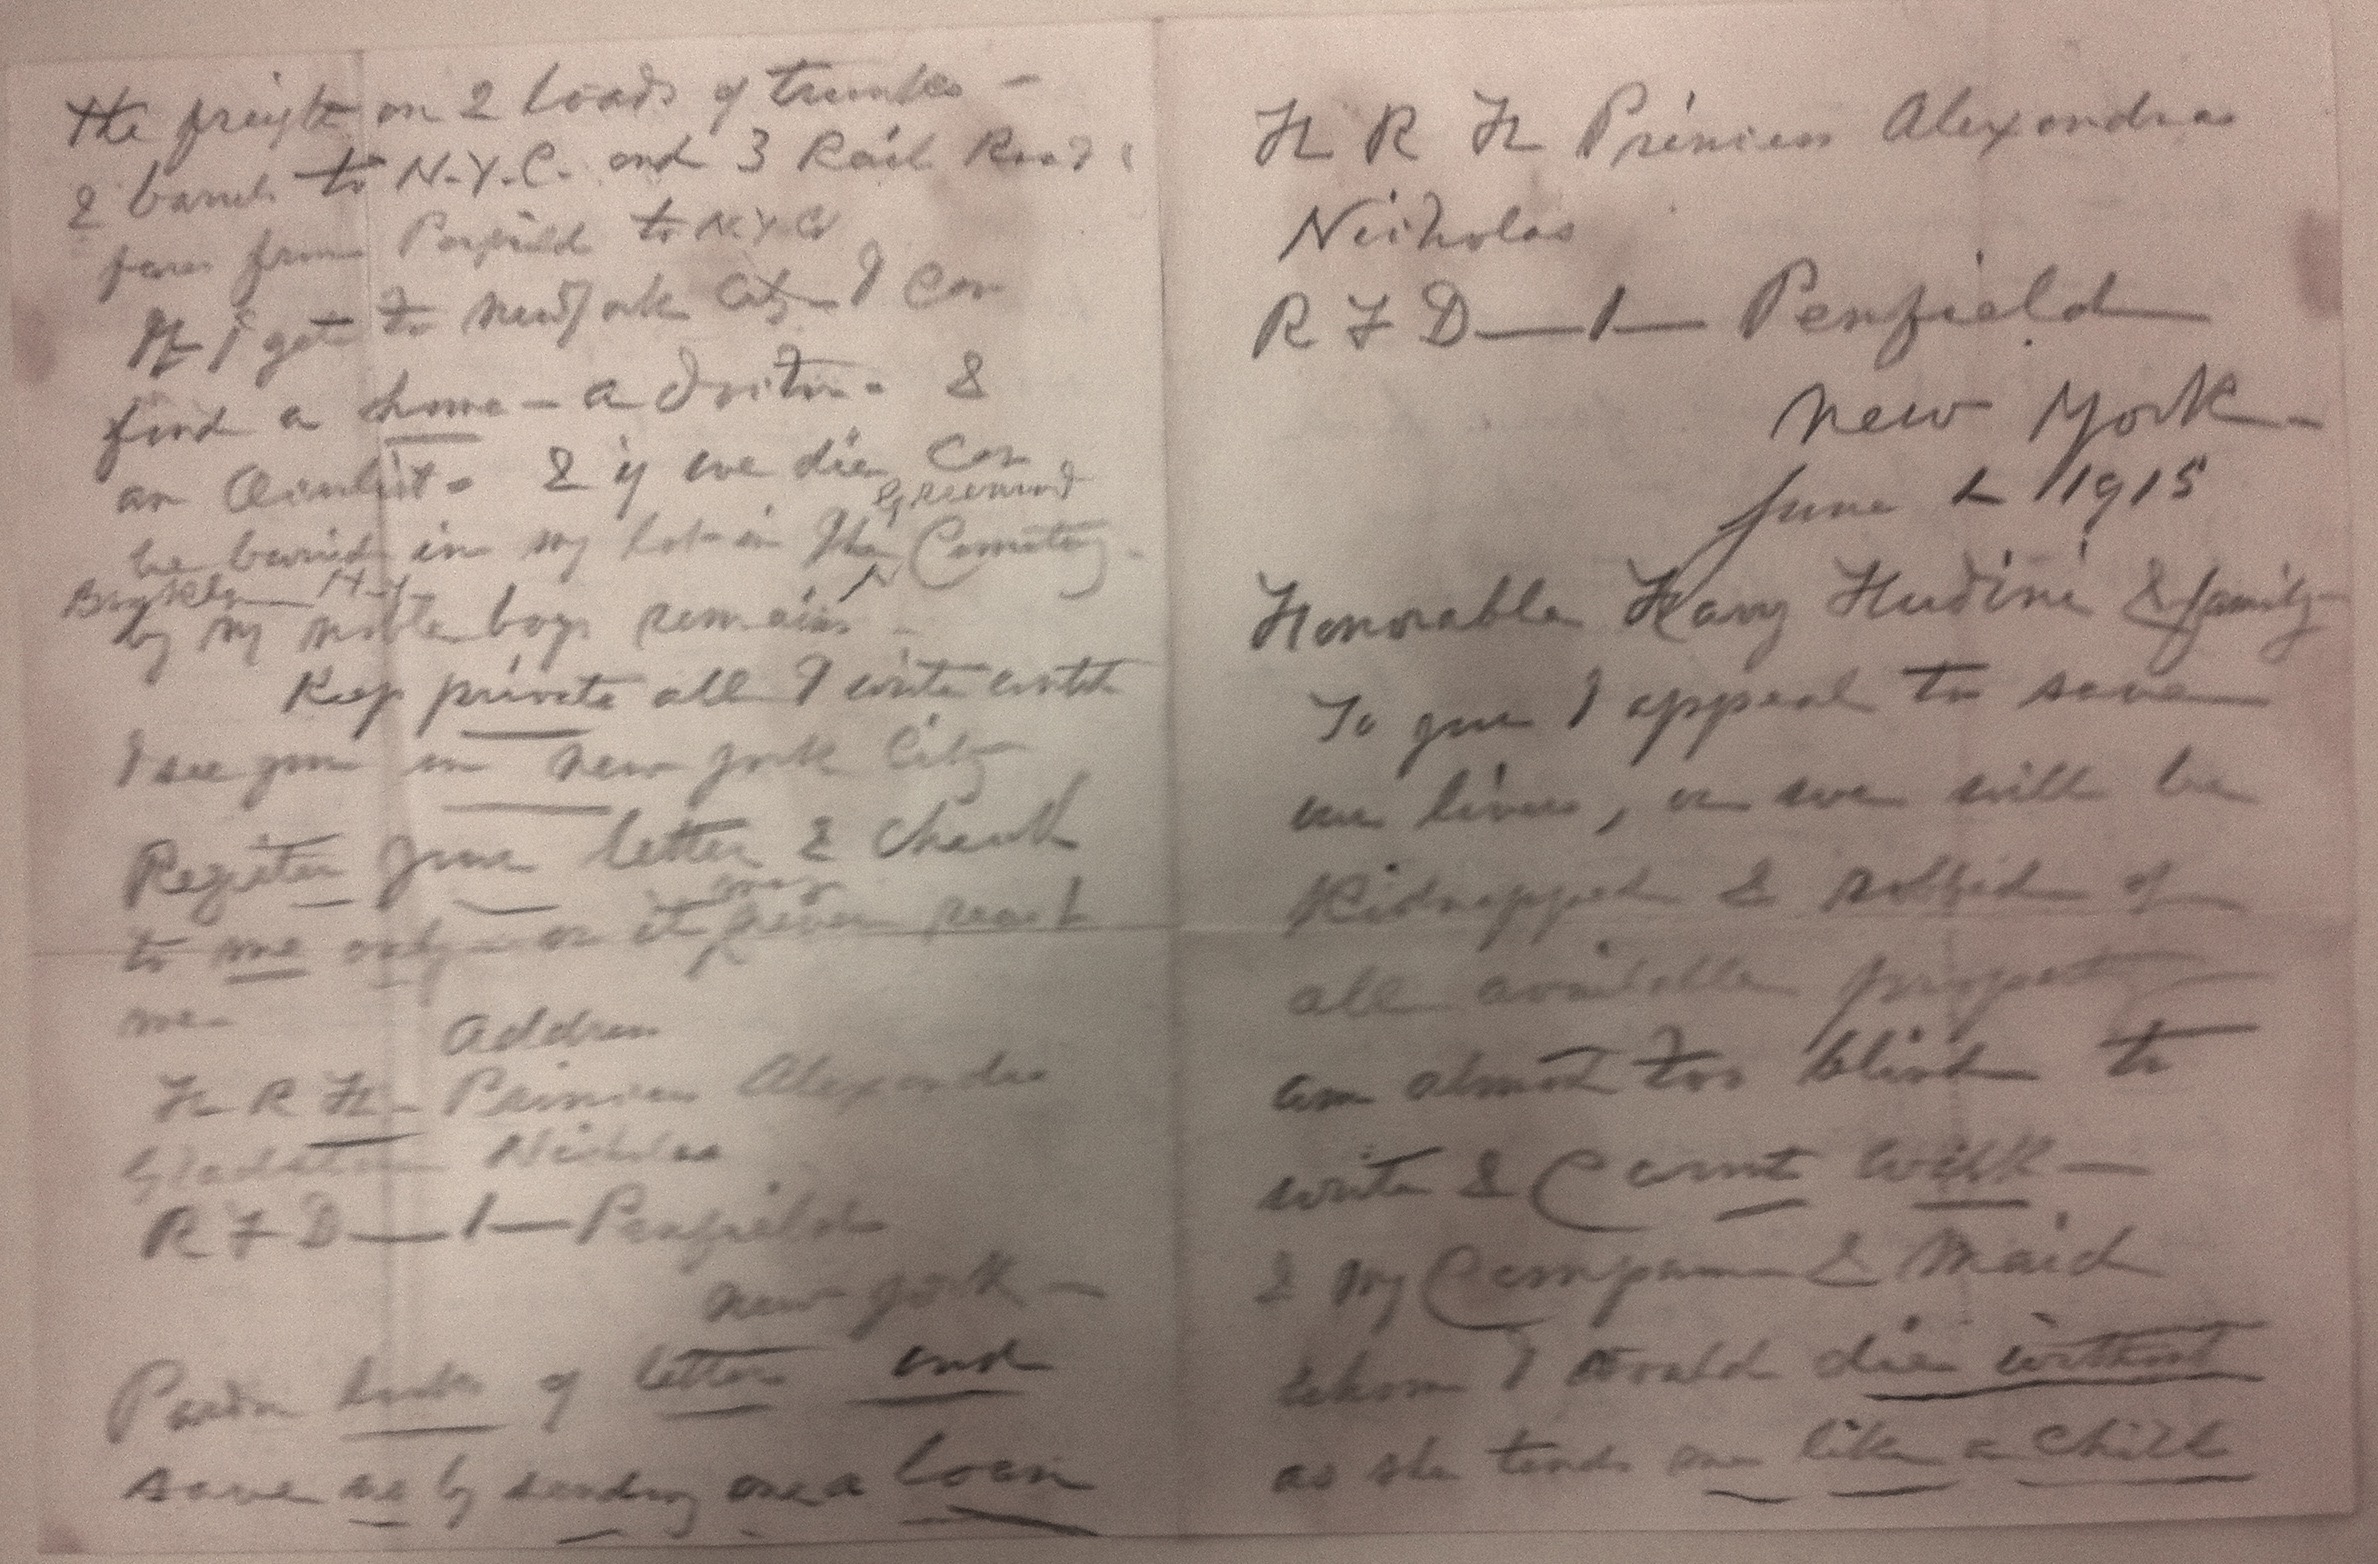 H R H Princess Alexandra
Nicholas
R F D — 1 — Penfield
New York —
June 2 1915
Honorable Harry Hudini & family —
To you I appeal to save
our lives, or we will be
Kidnapped & robbed of
all available property —
am almost too blind to
write & Cannt walk —
& my Companion & Maid
whom I would die without
as she tends me like a child
the freight on 2 loads of trunks —
2 barrels to N.Y.C. and 3 Rail Road
fares from Penfield to N.Y.C
If I get to New York City I can
find a home — a doctor &
an Oculist & if we die can
be buried in my lot in the Greenwood Cemetery —
Brooklyn N.Y.
by my noble boys remains —
Keep private all I write until
I see you in New York City
Register your letter & check
to me only — or it may never reach
me —
Address
H R H — Princess Alexandra
Gladstone Nicholas
R F D — 1 — Penfield
New York —
Pardon looks of letter and
save us by sending me a loan